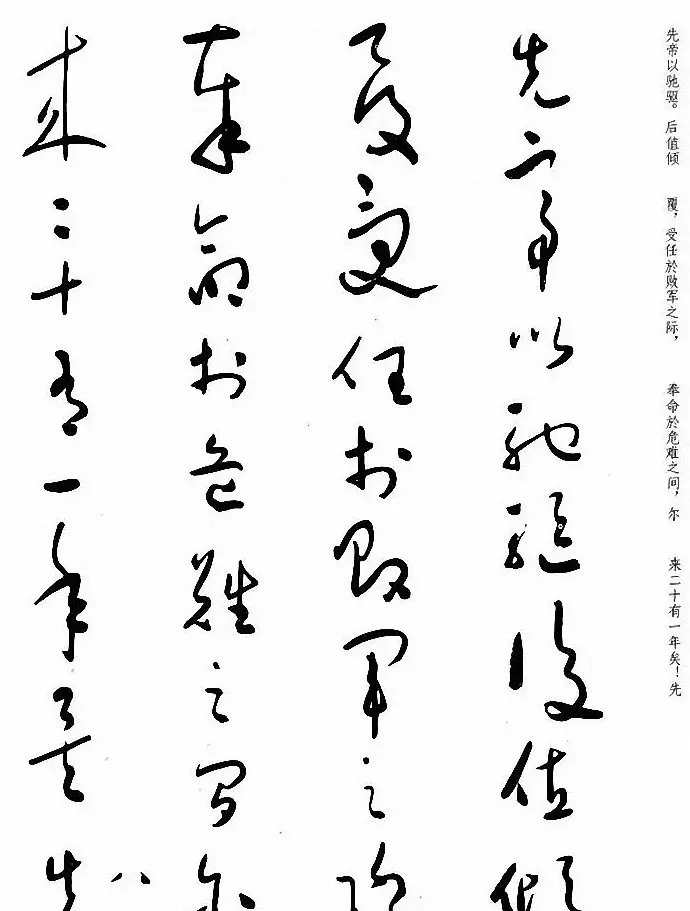 先帝以驰驱。后值倾
覆，受任於败军之际，
奉命於危难之间，尔
来二十有一年矣！先
先帝以馳驅後值傾
覆受任於敗軍之際
奉命於危難之間爾
來二十有一年矣先
八